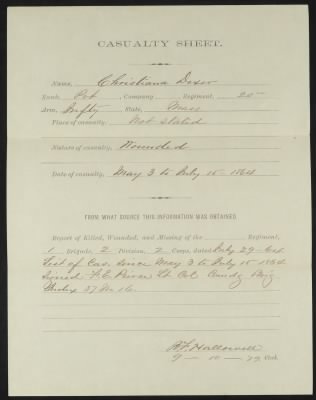 CASUALTY SHEET.
Name, Christiana Dexer
Rank, Pvt , Company , Regiment, 20
Arm, Infty , State, Mass
Place of casualty, Not stated
Nature of casualty, Wounded
Date of casualty, May 3 to July 15 - 1864
FROM WHAT SOURCE THIS INFORMATION WAS OBTAINED.
Report of Killed, Wounded, and Missing of the Regiment,
1 Brigade, 2 Division, 2 Corps, dated July 29-64
List of Cas. since May 3 to July 15 1864
Signed F. E. Pierce Lt. Col. Comdg Brig
37
Hallowell
9 - 10 - 79 Clerk.